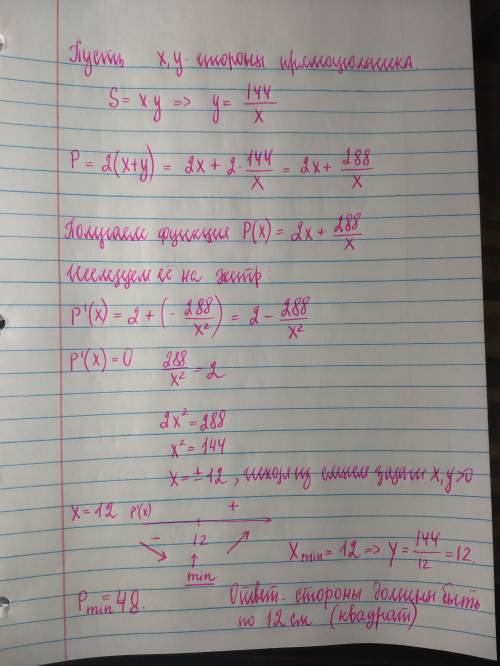 Пусть x, y - стороны прямоугольника.
S = x·y => y = 144/x
P = 2(x+y) = 2x + 2·144/x = 2x + 288/x
Получаем функция P(x) = 2x + 288/x
Исследуем её на экстр:
P'(x) = 2 + (- 288/x²) = 2 - 288/x²
P'(x) = 0 288/x² = 2
2x² = 288
x² = 144
x = ± 12, исходя из смысл задачи x, y > 0
x = 12 P'(x) - 12 +
min
x min = 12 => y = 144/12 = 12.
P min = 48.
Ответ: стороны должны быть
по 12 см (квадрат)